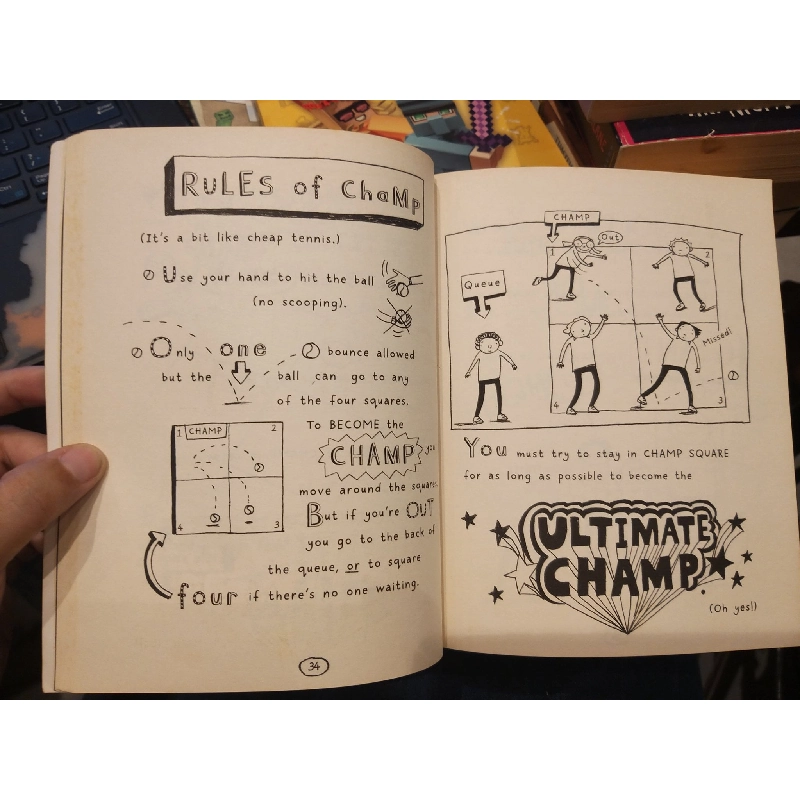 RULES of ChaMp
(It's a bit like cheap tennis.)
Use your hand to hit the ball
(no scooping).
Only one bounce allowed
but the ball can go to any
of the four squares.
1 CHAMP 2
4 3
To BECOME the
CHAMP you
move around the squares.
But if you're OUT
you go to the back of
the queue, or to square
four if there's no one waiting.
34
CHAMP
1 Out 2
Queue
Missed!
4 3
You must try to stay in CHAMP SQUARE
for as long as possible to become the
ULTIMATE
CHAMP.
(Oh yes!)